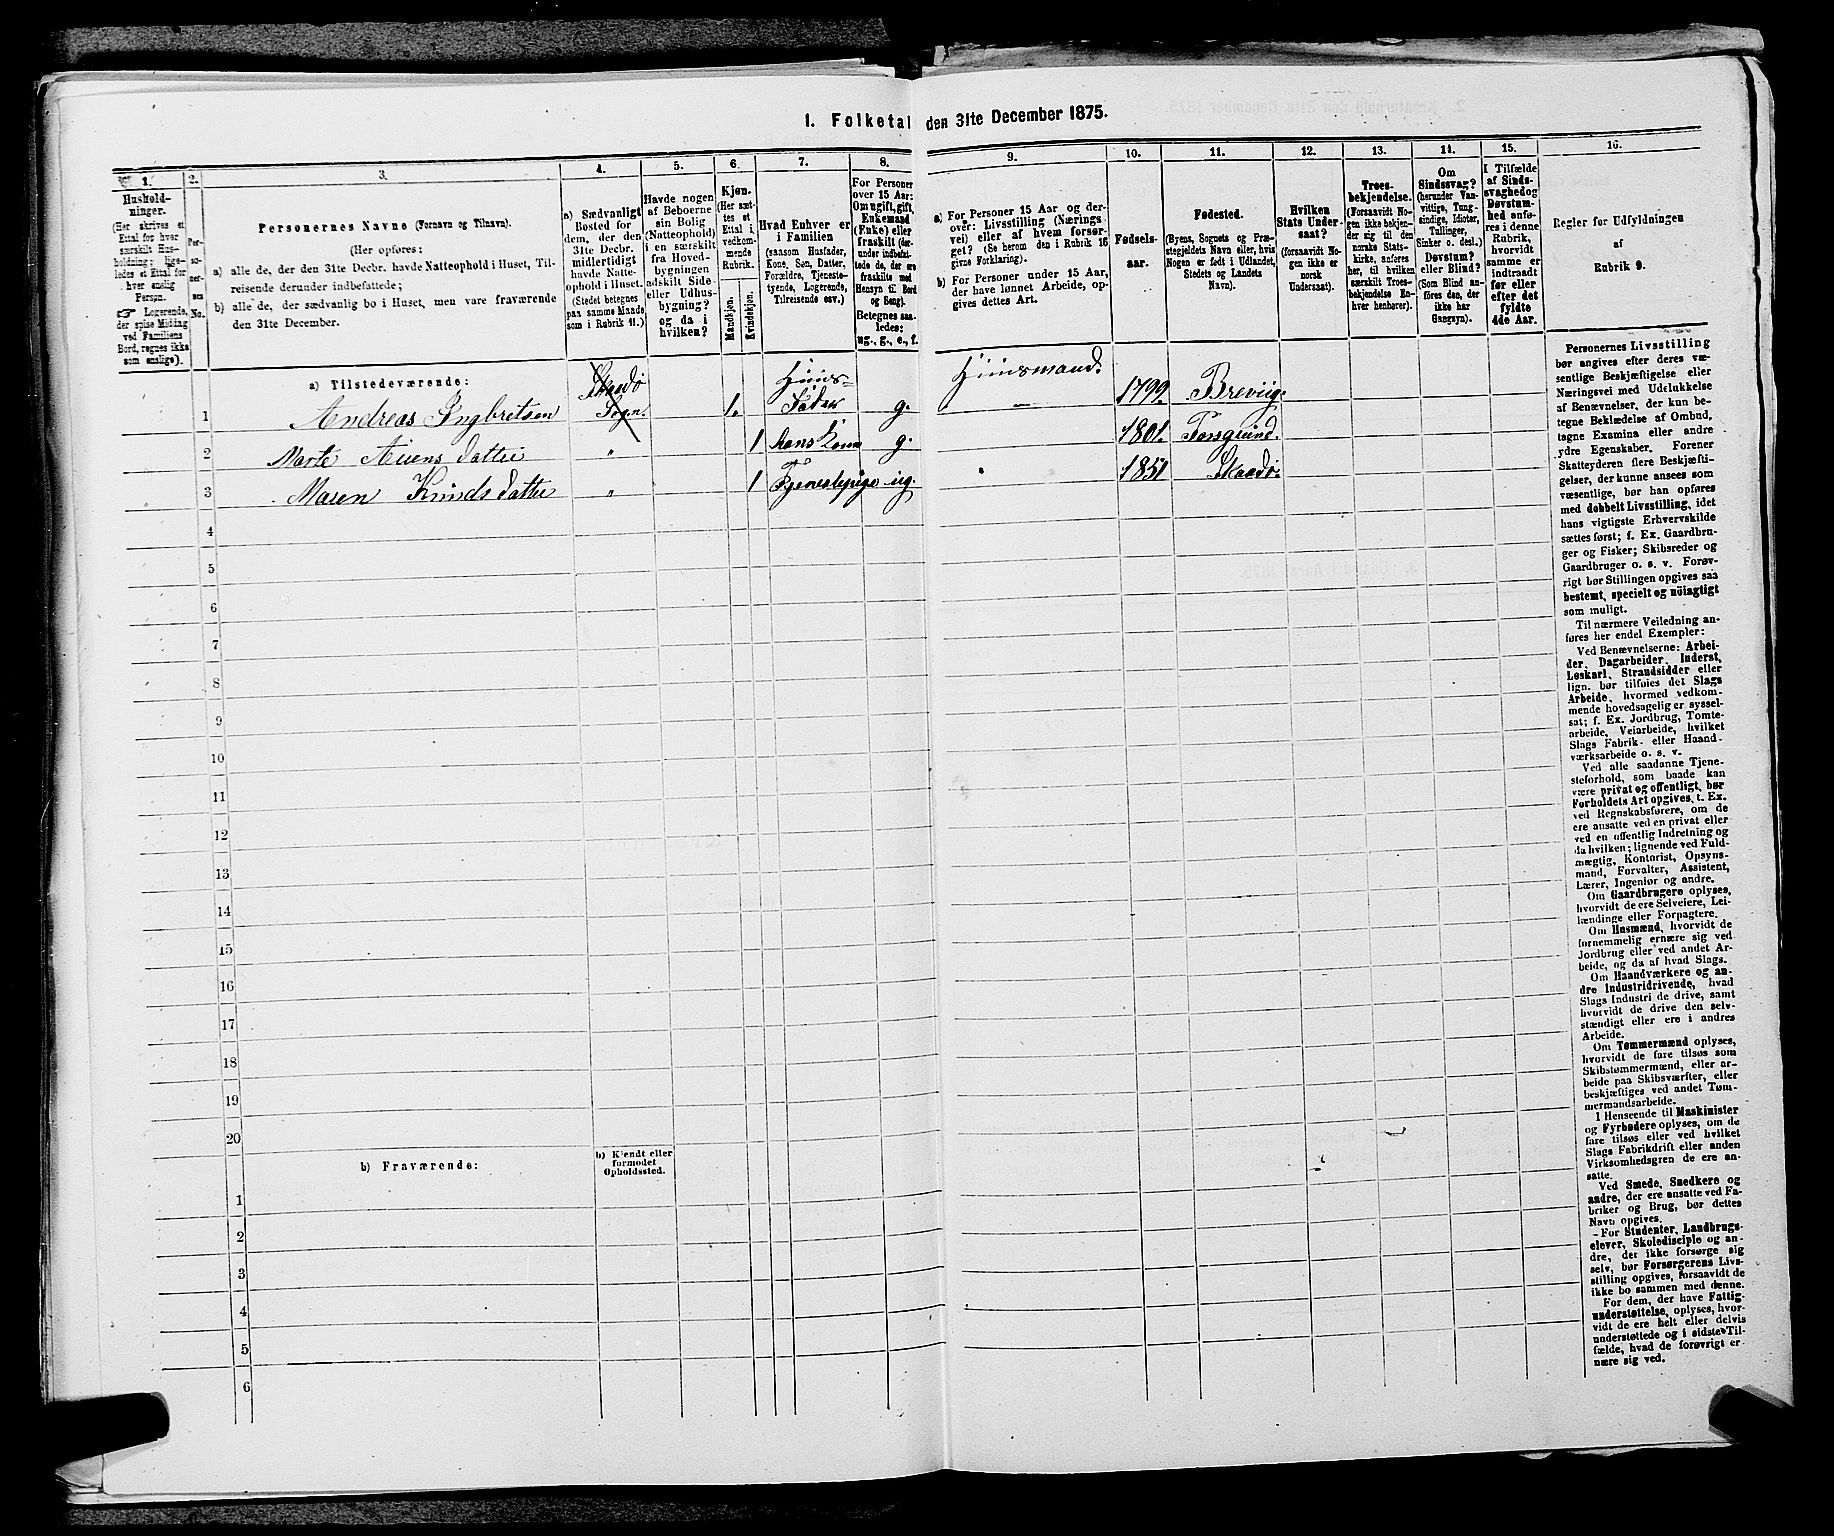 1. Folketal den 31te December 1875.
1.
2.
3.
4.
5.
6.
7.
8.
9.
10.
11.
12.
13.
14.
15.
16.
Hushold-
ninger.
(Her skrives et
Ettal for hver
særskilt Hus-
holdning; lige-
ledes et Ettal for
hver enslig
Person.
☞ Logerende,
der spise Middag
ved Familiens
Bord, regnes ikke
som enslige).
Per-
so-
ner-
nes
No.
Personernes Navne (Fornavn og Tilnavn).
(Her opføres:
a) alle de, der den 31te Decbr. havde Natteophold i Huset, Til-
reisende derunder indbefattede;
b) alle de, der sædvanlig bo i Huset, men vare fraværende
den 31te December.
a) Sædvanligt
Bosted for
dem, der den
31te Decbr.
midlertidigt
havde Natte-
ophold i Huset.
(Stedet betegnes
paa samme Maade
som i Rubrik 11.)
Havde nogen
af Beboerne
sin Bolig
(Natteophold)
i en særskilt
fra Hoved-
bygningen
adskilt Side-
eller Udhus-
bygning?
og da i
hvilken?
Kjøn.
(Her sæt-
tes et
Ettal i
vedkom-
mende
Rubrik.
Mandkjøn.
Kvindekjøn.
Hvad Enhver er
i Familien
(saasom Husfader,
Kone, Søn, Datter,
Forældre, Tjeneste-
tyende, Logerende,
Tilreisende osv.)
For Personer
over 15 Aar:
Om ugift, gift,
Enkemand
(Enke) eller
fraskilt (der-
under indbefat-
tede de, der ere
fraskilte med
Hensyn til Bord
og Seng).
Betegnes saa-
ledes:
ug., g., e., f.
a) For Personer 15 Aar og der-
over: Livsstilling (Nærings-
vei) eller af hvem forsør-
get? (Se herom den i Rubrik 16
givne Forklaring).
b) For Personer under 15 Aar,
der have lønnet Arbeide, op-
gives dettes Art.
Fødsels-
aar.
Fødested.
(Byens, Sognets og Præ-
stegjeldets Navn eller, hvis
Nogen er født i Udlandet,
Stedets og Landets
Navn).
Hvilken
Stats Under-
saat?
(forsaavidt No-
gen ikke er
norsk
Undersaat).
Troes-
bekjendelse.
(Forsaavidt No-
gen ikke bekjen-
der sig til den
norske Stats-
kirke, anføres
her, til hvilken
særskilt Troes-
bekjendelse En-
hver henhører).
Om
Sindssvag?
(herunder Van-
vittige, Tung-
sindige, Idioter,
Tullinger,
Sinker o. desl.)
Døvstum?
eller Blind?
(Som Blind an-
føres den, der
ikke har
Gangsyn).
I Tilfælde
af Sinds-
svaghed og
Døvstum-
hed anfø-
res i denne
Rubrik,
hvorvidt
samme er
indtraadt
før eller
efter det
fyldte
4de Aar.
Regler for Udfyldningen
af
Rubrik 9.
a) Tilstedeværende:
1 Andreas Ingbretsen Skaadø Sogn. 1. Huus- Fader g. Huusmand. 1799 Breviig.
2 Marte " 1 hans kone g. 1801
3 Maren Knuds datter " 1 Tjenestepige ug. " 1851 Skaadø.
4
5
6
7
8
9
10
11
12
13
14
15
16
17
18
19
20
b) Fraværende:
b) Kjendt eller
formodet
Opholdssted.
1
2
3
4
5
6
Personernes Livsstilling
bør angives efter deres væ-
sentlige Beskjæftigelse eller
Næringsvei med Udelukkelse
af Benævnelser, der kun be-
tegne Beklædelse af Ombud,
tagne Examina eller andre
ydre Egenskaber. Forener
Skatteyderen flere Beskjæfti-
gelser, der kunne ansees som
væsentlige, bør han opføres
med dobbelt Livsstilling, idet
hans vigtigste Erhvervskilde
sættes først; f. Ex. Gaardbru-
ger og Fisker; Skibsreder og
Gaardbruger o. s. v. Forøv-
rigt bør Stillingen opgives saa
bestemt, specielt og nöiagtigt
som muligt.
Til nærmere Veiledning an-
føres her endel Exempler:
Ved Benævnelserne: Arbei-
der, Dagarbeider, Inderst,
Løskarl, Strandsidder eller
lign. bør tilføies det Slags
Arbeide, hvormed vedkom-
mende hovedsagelig er syssel-
sat; f. Ex. Jordbrug, Tomte-
arbeide, Veiarbeide, hvilket
Slags Fabrik- eller Haand-
værksarbeide o. s. v.
Ved alle saadanne Tjene-
steforhold, som baade kan
være privat og offentligt, bør
Forholdets Art opgives, t. Ex.
ved Regnskabsførere, om de
ere ansatte ved en privat eller
ved en offentlig Indretning og
da hvilken; lignende ved Fuld-
mægtig, Kontorist, Opsyns-
mand, Forvalter, Assistent,
Lærer, Ingeniør og andre.
Om Gaardbrugere oplyses,
hvorvidt de ere Selveiere, Lei-
lændinge eller Forpagtere.
Om Husmænd, hvorvidt de
fornemmelig ernære sig ved
Jordbrug eller ved andet Ar-
beide, og da af hvad Slags.
Om Haandværkere og an-
dre Industridrivende, hvad
Slags Industri de drive, samt
hvorvidt de drive den selv-
stændigt eller ere i andres
Arbeide.
Om Tømmermænd oplyses,
hvorvidt de fare tilsøs som
Skibstømmermænd, eller ar-
beide paa Skibsværfter, eller
beskjæftiges ved andet Tøm-
mermandsarbeide.
I Henseende til Maskinister
og Fyrbødere oplyses, om de
fare tilsøs eller ved hvilket
Slags Fabrikdrift eller anden
Virksomhedsgren de ere an-
satte.
Ved Smede, Snedkere og
andre, der ere ansatte ved Fa-
briker og Brug, bør dettes
Navn opgives.
For Studenter, Landbrugs-
elever, Skoledisciple og an-
dre, der ikke forsørge sig
selv, bør Forsørgerens Livs-
stilling opgives, forsaavidt de
ikke bo sammen med denne.
For dem, der have Fattig-
understøttelse, oplyses, hvor-
vidt de ere helt eller delvis
understøttede og i sidste Til-
fælde, hvad de forøvrigt er-
nære sig ved.